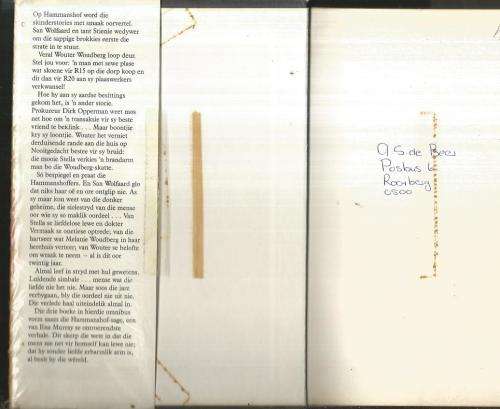 Op Hammanshof word die
skinderstories met smaak oorvertel.
San Wolfaard en tant Stienie wedywer
om die sappige brokkies eerste die
strate in te stuur.
Veral Wouter Woudberg loop deur.
Stel jou voor: 'n man met sewe plase
wat skoene vir R15 op die dorp koop en
dit dan vir R20 aan sy plaaswerkers
verkwansel!
Hoe hy aan sy aardse besittings
gekom het, is 'n ander storie.
Prokureur Dirk Opperman weet mos
net hoe om 'n transaksie vir sy beste
vriend te beklink . . . Maar boontjie
kry sy loontjie. Wouter het verniet
derduisende rande aan die huis op
Nooitgedacht bestee vir sy bruid:
die mooie Stella verkies 'n brandarm
man bo die Woudberg-skatte.
Só bespiegel en praat die
Hammanshoffers. En San Wolfaard glo
dat niks haar oë en ore ontglip nie. As
sy maar kon weet van die donker
geheime, die sielestryd van die mense
oor wie sy so maklik oordeel . . . Van
Stella se liefdelose lewe en dokter
Vermaak se onetiese optrede; van die
hartseer wat Melanie Woudberg in haar
herehuis verteer; van Wouter se belofte
om wraak te neem – al is dit oor
twintig jaar.
Almal leef in stryd met hul gewetens.
Luidende simbale . . . mense wat die
liefde nie het nie. Maar soos die jare
verbygaan, bly die oordeel nie uit nie.
Die verlede haal uiteindelik almal in.
Die drie boeke in hierdie omnibus
vorm saam die Hammanshof-sage, een
van Ena Murray se ontroerendste
verhale. Dit skerp die wete in dat die
mens nie net vir homself kan lewe nie;
dat hy sonder liefde erbarmlik arm is,
al besit hy die wêreld.
S. de Beer
Posbus 6
0500